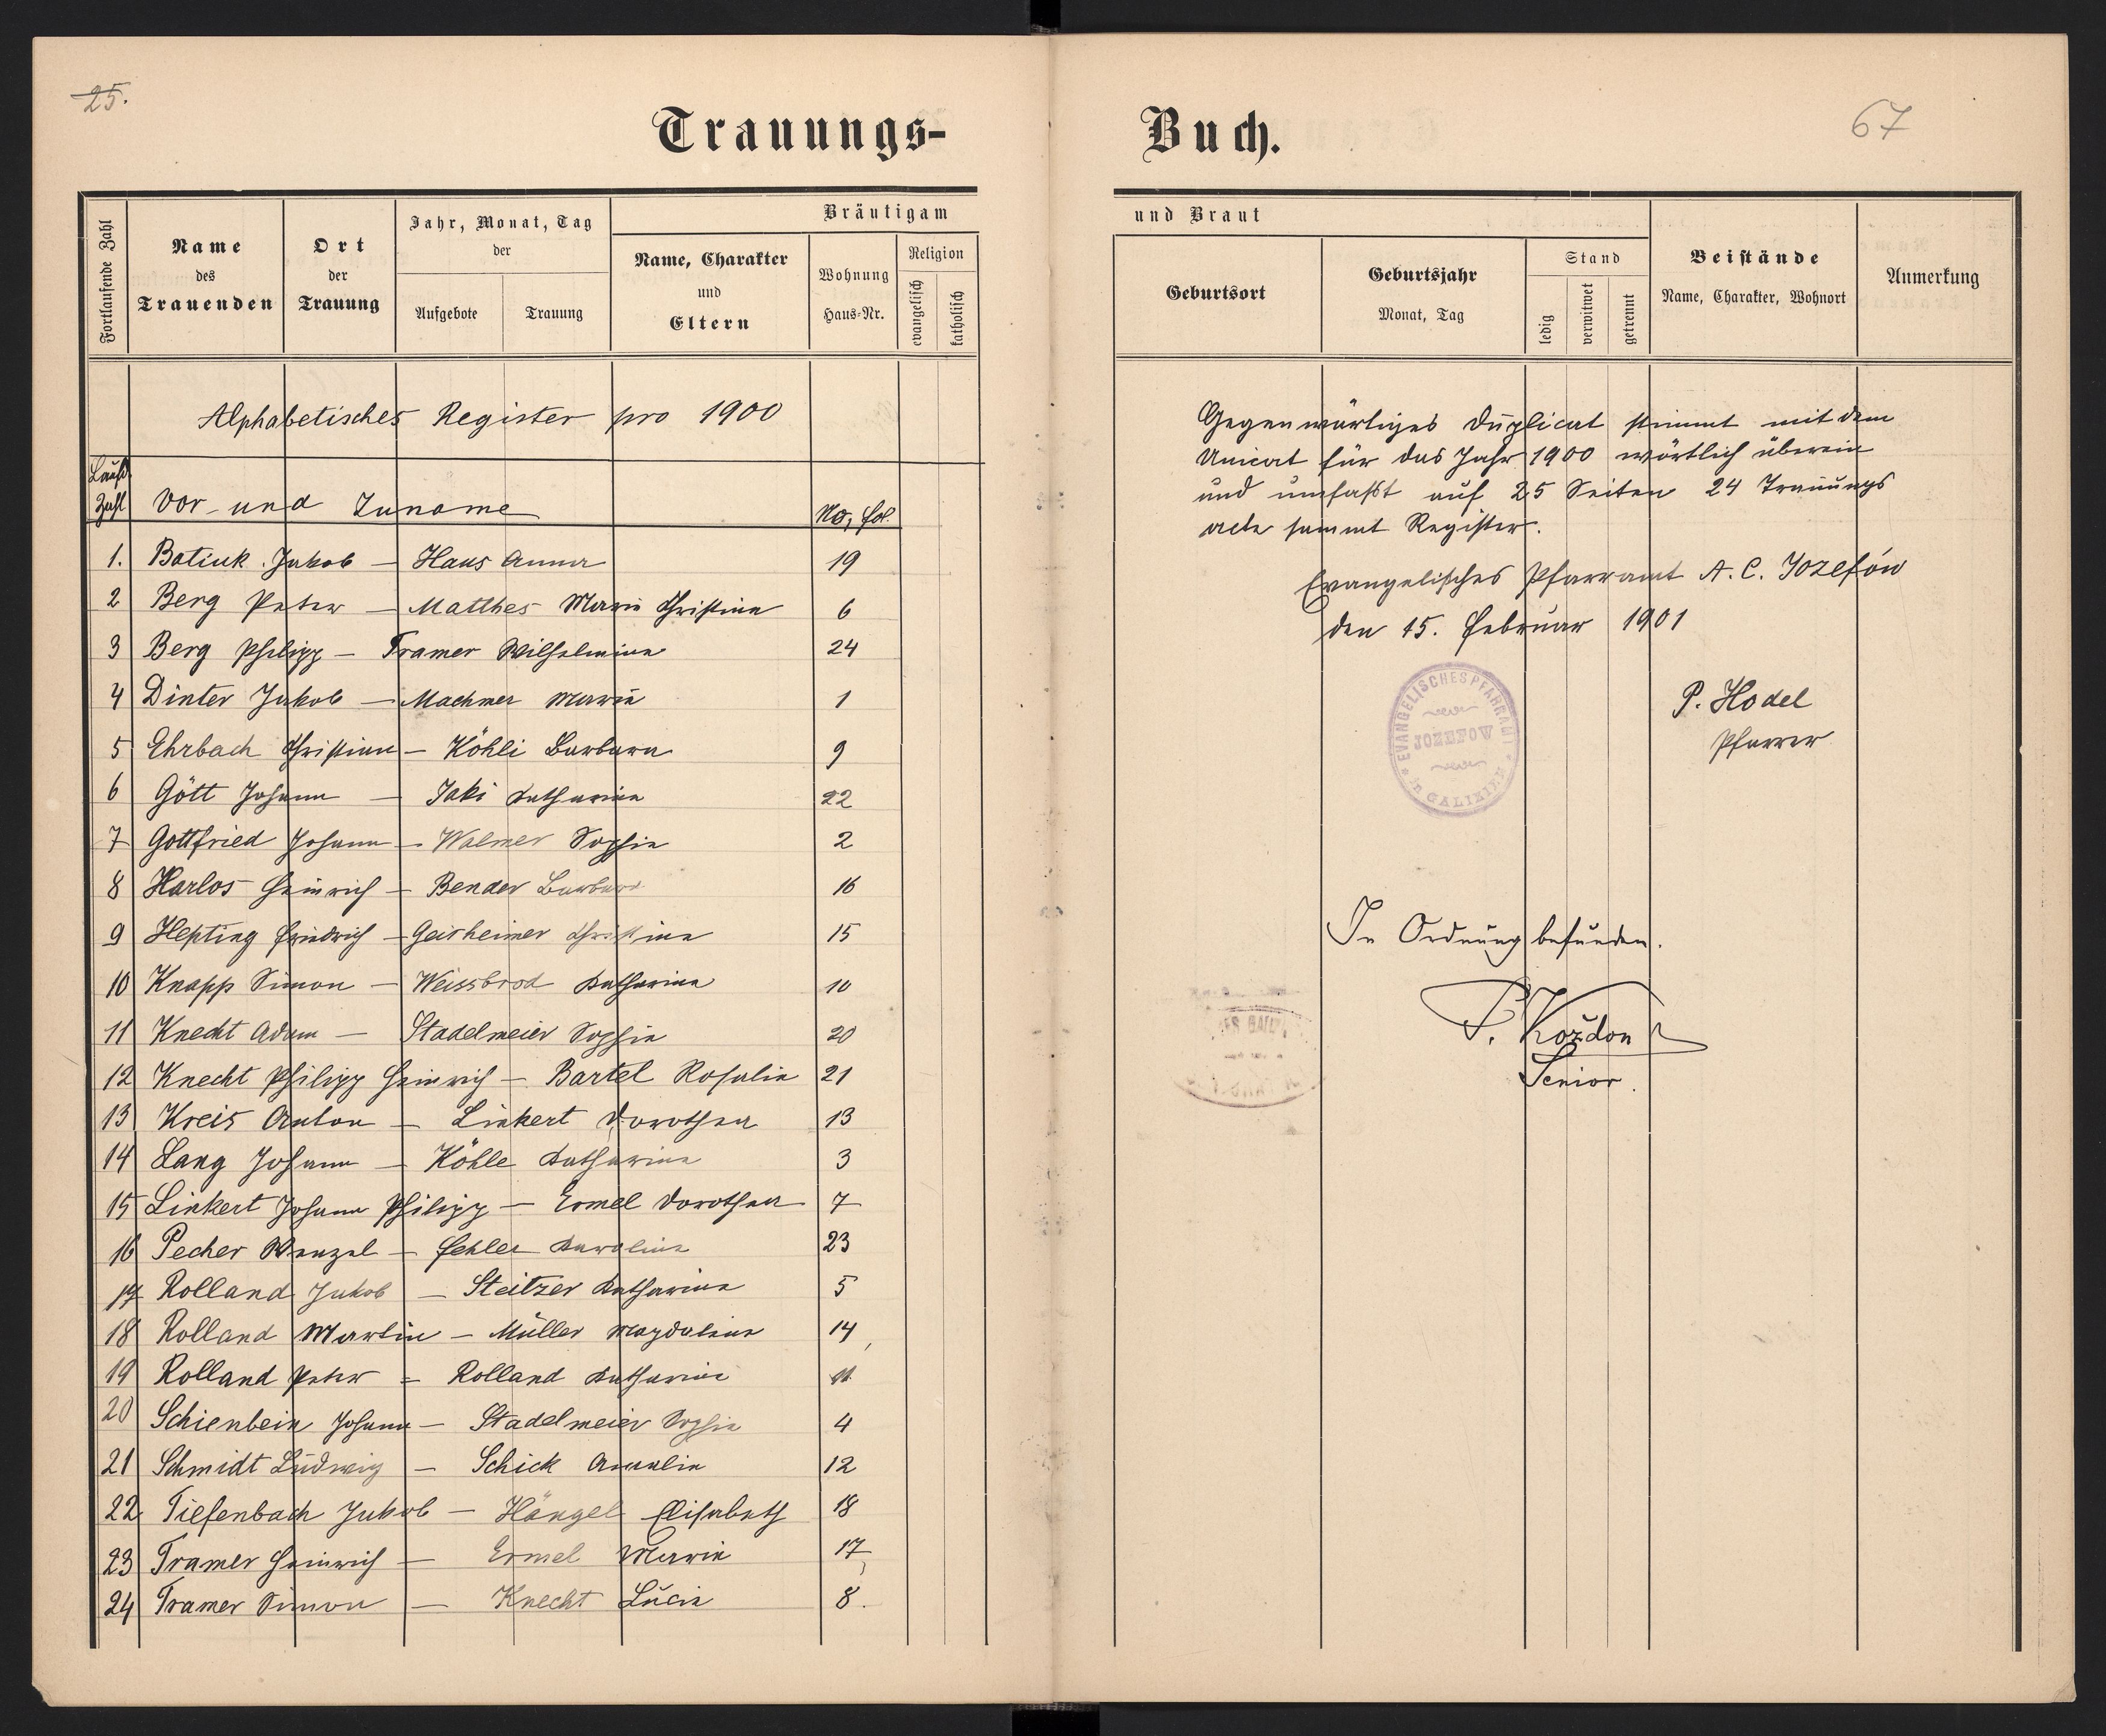 25.
67
Trauungs-
Buch.
Fortlaufende Zahl
Name
des
Trauenden
Ort
der
Trauung
Jahr, Monat, Tag
der
Aufgebote
Trauung
Bräutigam
Name, Charakter
und
Eltern
Wohnung
Haus-Nr.
Religion
evangelisch
katholisch
und Braut
Geburtsort
Geburtsjahr
Monat, Tag
Stand
ledig
verwitwet
getrennt
Beistände
Name, Charakter, Wohnort
Anmerkung
Alphabetisches Register pro 1900
Laufd.
Zahl
Vor- und Zuname
No, fol.
1. Batiuk Jakob — Haus Anna 19
2 Berg Peter — Matthes Maria Christina 6
3 Berg Philipp — Tramer Wilhelmine 24
4 Dinter Jakob — Machmer Maria 1
5 Ehrbach Christian — Köhli Barbara 9
6 Gött Johann — Jaki Katharina 22
7 Gottfried Johann — Walmer Sophia 2
8 Harlos Heinrich — Bender Barbara 16
9 Hepting Friedrich — Geisheimer Christina 15
10 Knapp Simon — Weissbrod Katharina 10
11 Knecht Adam — Stadelmeier Sophia 20
12 Knecht Philipp Heinrich — Bartel Rosalia 21
13 Kreis Anton — Linkert Dorothea 13
14 Lang Johann — Köhle Katharina 3
15 Linkert Johann Philipp — Ermel Dorothea 7
16 Pecher Wenzel — Fehler Karolina 23
17 Rolland Jakob — Steitzer Katharina 5
18 Rolland Martin — Müller Magdalena 14
19 Rolland Peter — Rolland Katharina 11
20 Schienbein Johann — Stadelmeier Sophia 4
21 Schmidt Ludwig — Schick Amalia 12
22 Tiefenbach Jakob — Hängel Elisabeth 18
23 Tramer Heinrich — Ermel Maria 17
24 Tramer Simon — Knecht Lucia 8.
Gegenwärtiges Duplicat stimmt mit dem
Unicat für das Jahr 1900 wörtlich überein
und umfasst auf 25 Seiten 24 Trauungs
acte sammt Register.
Evangelisches Pfarramt A. C. Jozefów
den 15. Februar 1901
EVANGELISCHES PFARRAMT
JOZEFOW
in GALIZIEN
P. Hodel
Pfarrer
In Ordnung befunden.
P. Koždon
Senior.